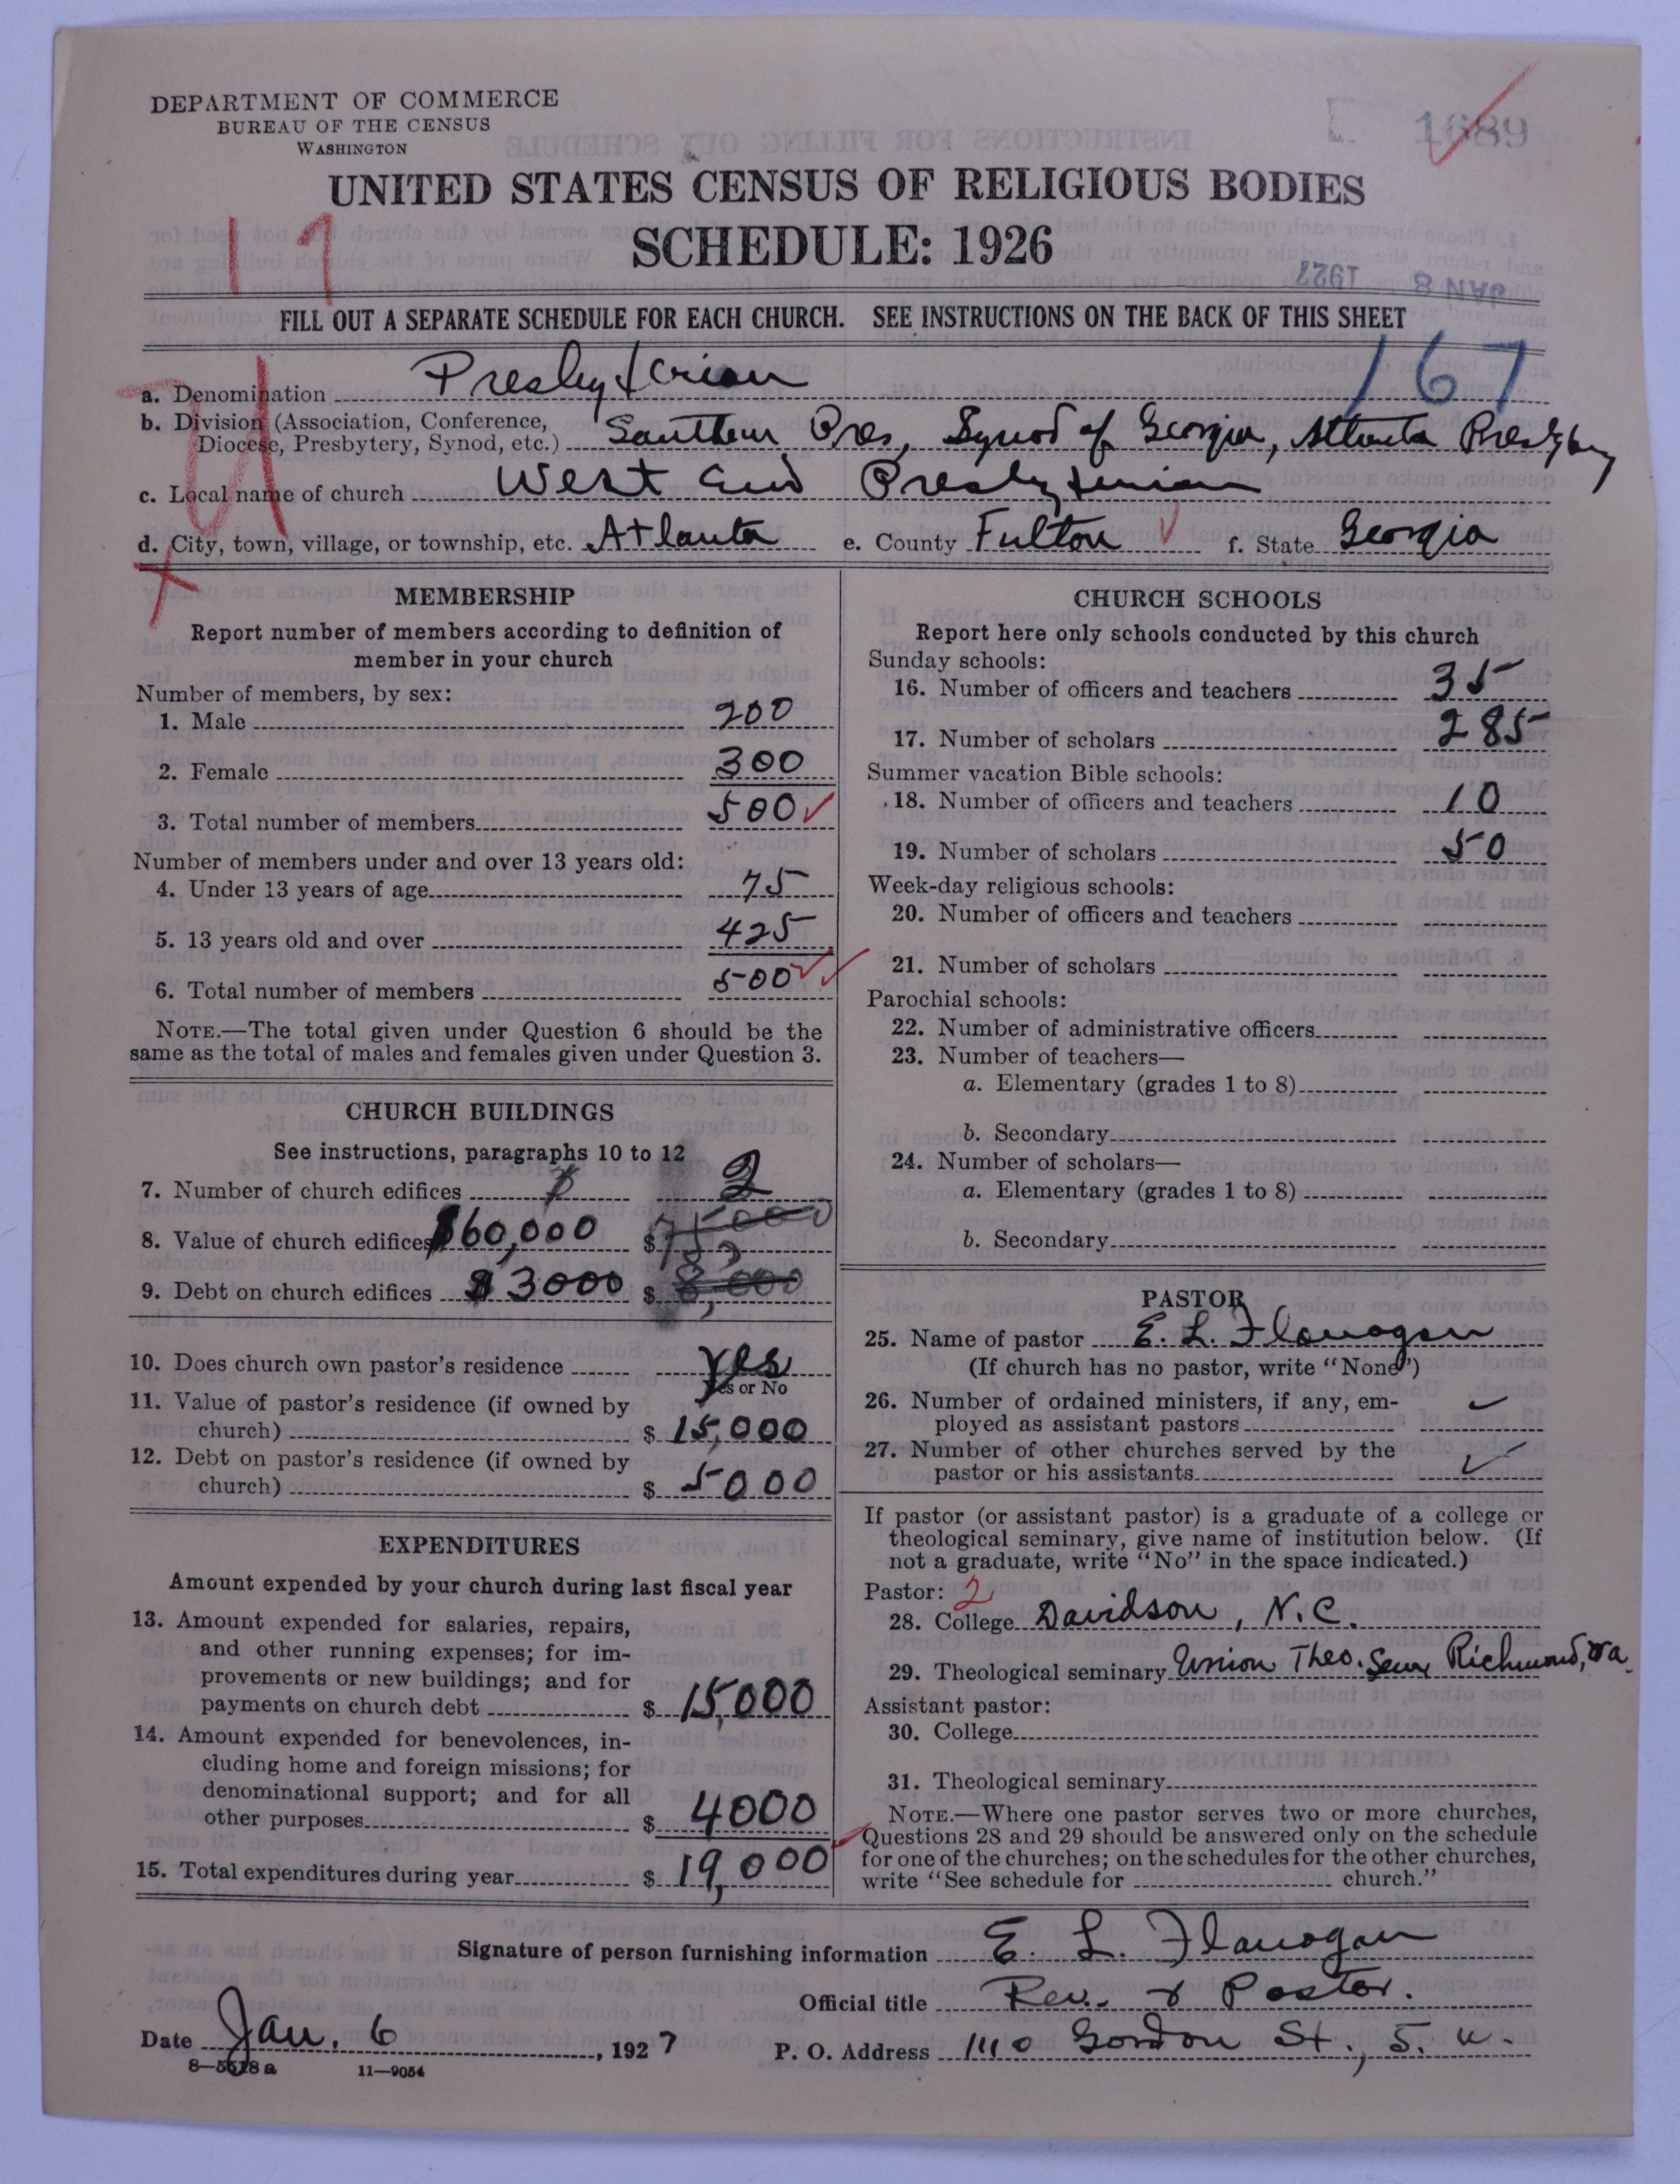 DEPARTMENT OF COMMERCE
BUREAU OF THE CENSUS
WASHINGTON
1689
UNITED STATES CENSUS OF RELIGIOUS BODIES
SCHEDULE: 1926
11
JAN 8 1927
FILL OUT A SEPARATE SCHEDULE FOR EACH CHURCH. SEE INSTRUCTIONS ON THE BACK OF THIS SHEET
167
a. Denomination Presbyterian
b. Division (Association, Conference, Diocese, Presbytery, Synod, etc.) Southern Pres, Synod of Georgia, Atlanta Presbytery
c. Local name of church West End Presbyterian
d. City, town, village, or township, etc. Atlanta e. County Fulton f. State Georgia
MEMBERSHIP
Report number of members according to definition of
member in your church
Number of members, by sex:
1. Male 200
2. Female 300
3. Total number of members 500
Number of members under and over 13 years old:
4. Under 13 years of age 75
5. 13 years old and over 425
6. Total number of members 500
NOTE.—The total given under Question 6 should be the
same as the total of males and females given under Question 3.
CHURCH BUILDINGS
See instructions, paragraphs 10 to 12
7. Number of church edifices 2
8. Value of church edifices $60,000 $ 75,000
9. Debt on church edifices $3000 $ 8,000
10. Does church own pastor's residence yes
Yes or No
11. Value of pastor's residence (if owned by
church) $ 15,000
12. Debt on pastor's residence (if owned by
church) $ 5000
EXPENDITURES
Amount expended by your church during last fiscal year
13. Amount expended for salaries, repairs,
and other running expenses; for im-
provements or new buildings; and for
payments on church debt $ 15,000
14. Amount expended for benevolences, in-
cluding home and foreign missions; for
denominational support; and for all
other purposes $ 4000
15. Total expenditures during year $ 19,000
CHURCH SCHOOLS
Report here only schools conducted by this church
Sunday schools:
16. Number of officers and teachers 35
17. Number of scholars 285
Summer vacation Bible schools:
18. Number of officers and teachers 10
19. Number of scholars 50
Week-day religious schools:
20. Number of officers and teachers
21. Number of scholars
Parochial schools:
22. Number of administrative officers
23. Number of teachers—
a. Elementary (grades 1 to 8)
b. Secondary
24. Number of scholars—
a. Elementary (grades 1 to 8)
b. Secondary
PASTOR
25. Name of pastor E. L. Flanogan
(If church has no pastor, write "None")
26. Number of ordained ministers, if any, em-
ployed as assistant pastors
27. Number of other churches served by the
pastor or his assistants
If pastor (or assistant pastor) is a graduate of a college or
theological seminary, give name of institution below. (If
not a graduate, write "No" in the space indicated.)
Pastor: 2
28. College Davidson, N.C.
29. Theological seminary Union Theo. Sem Richmond, Va.
Assistant pastor:
30. College
31. Theological seminary
NOTE.—Where one pastor serves two or more churches,
Questions 28 and 29 should be answered only on the schedule
for one of the churches; on the schedules for the other churches,
write "See schedule for church."
Signature of person furnishing information E. L. Flanogan
Official title Rev. & Pastor.
Date Jan. 6, 1927 P. O. Address 1110 Gordon St., S. W.
8—5518a 11—9054